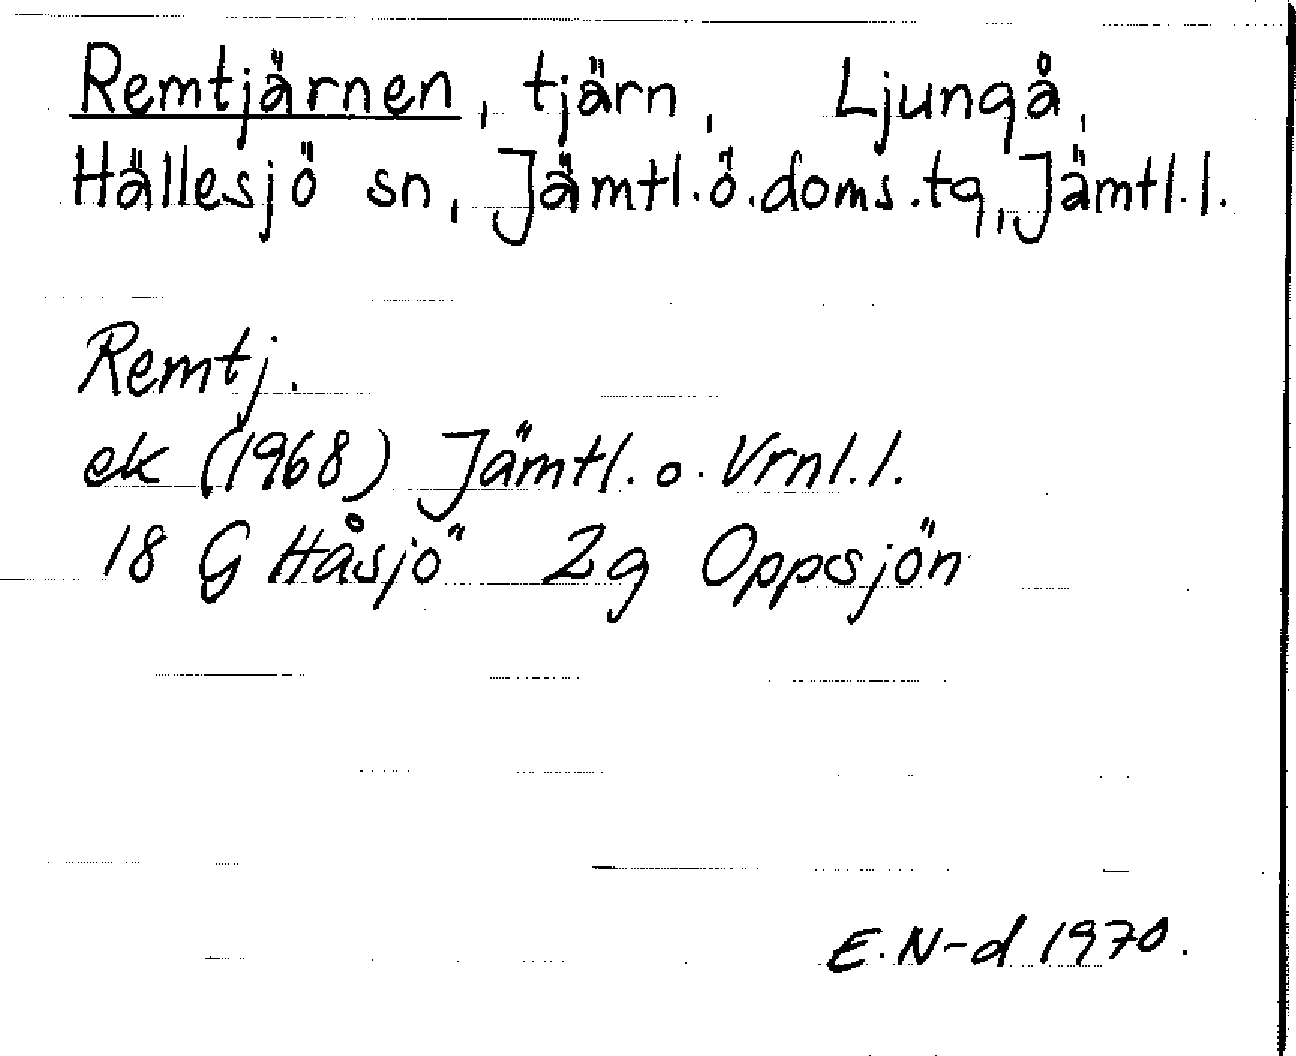 Remtjärnen, tjärn, Ljungå,
Hällesjö sn, Jämtl.ö.doms.tg, Jämtl.l.
Remtj.
ek (1968) Jämtl. o. Vrnl.l.
18 G Håsjö 2g Oppsjön
E.N-d 1970.